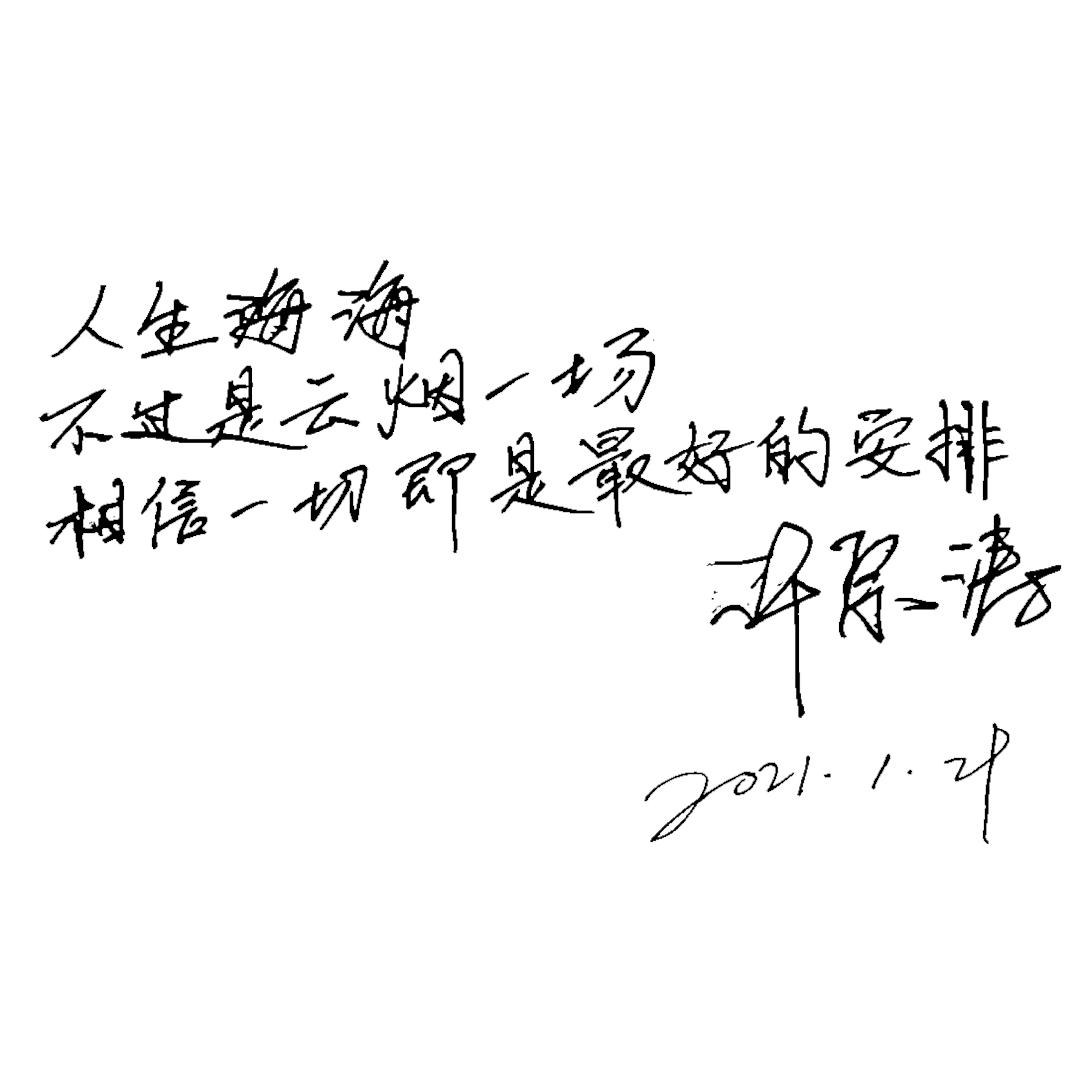 人生海海
不过是云烟一场
相信一切即是最好的安排
2021.1.29